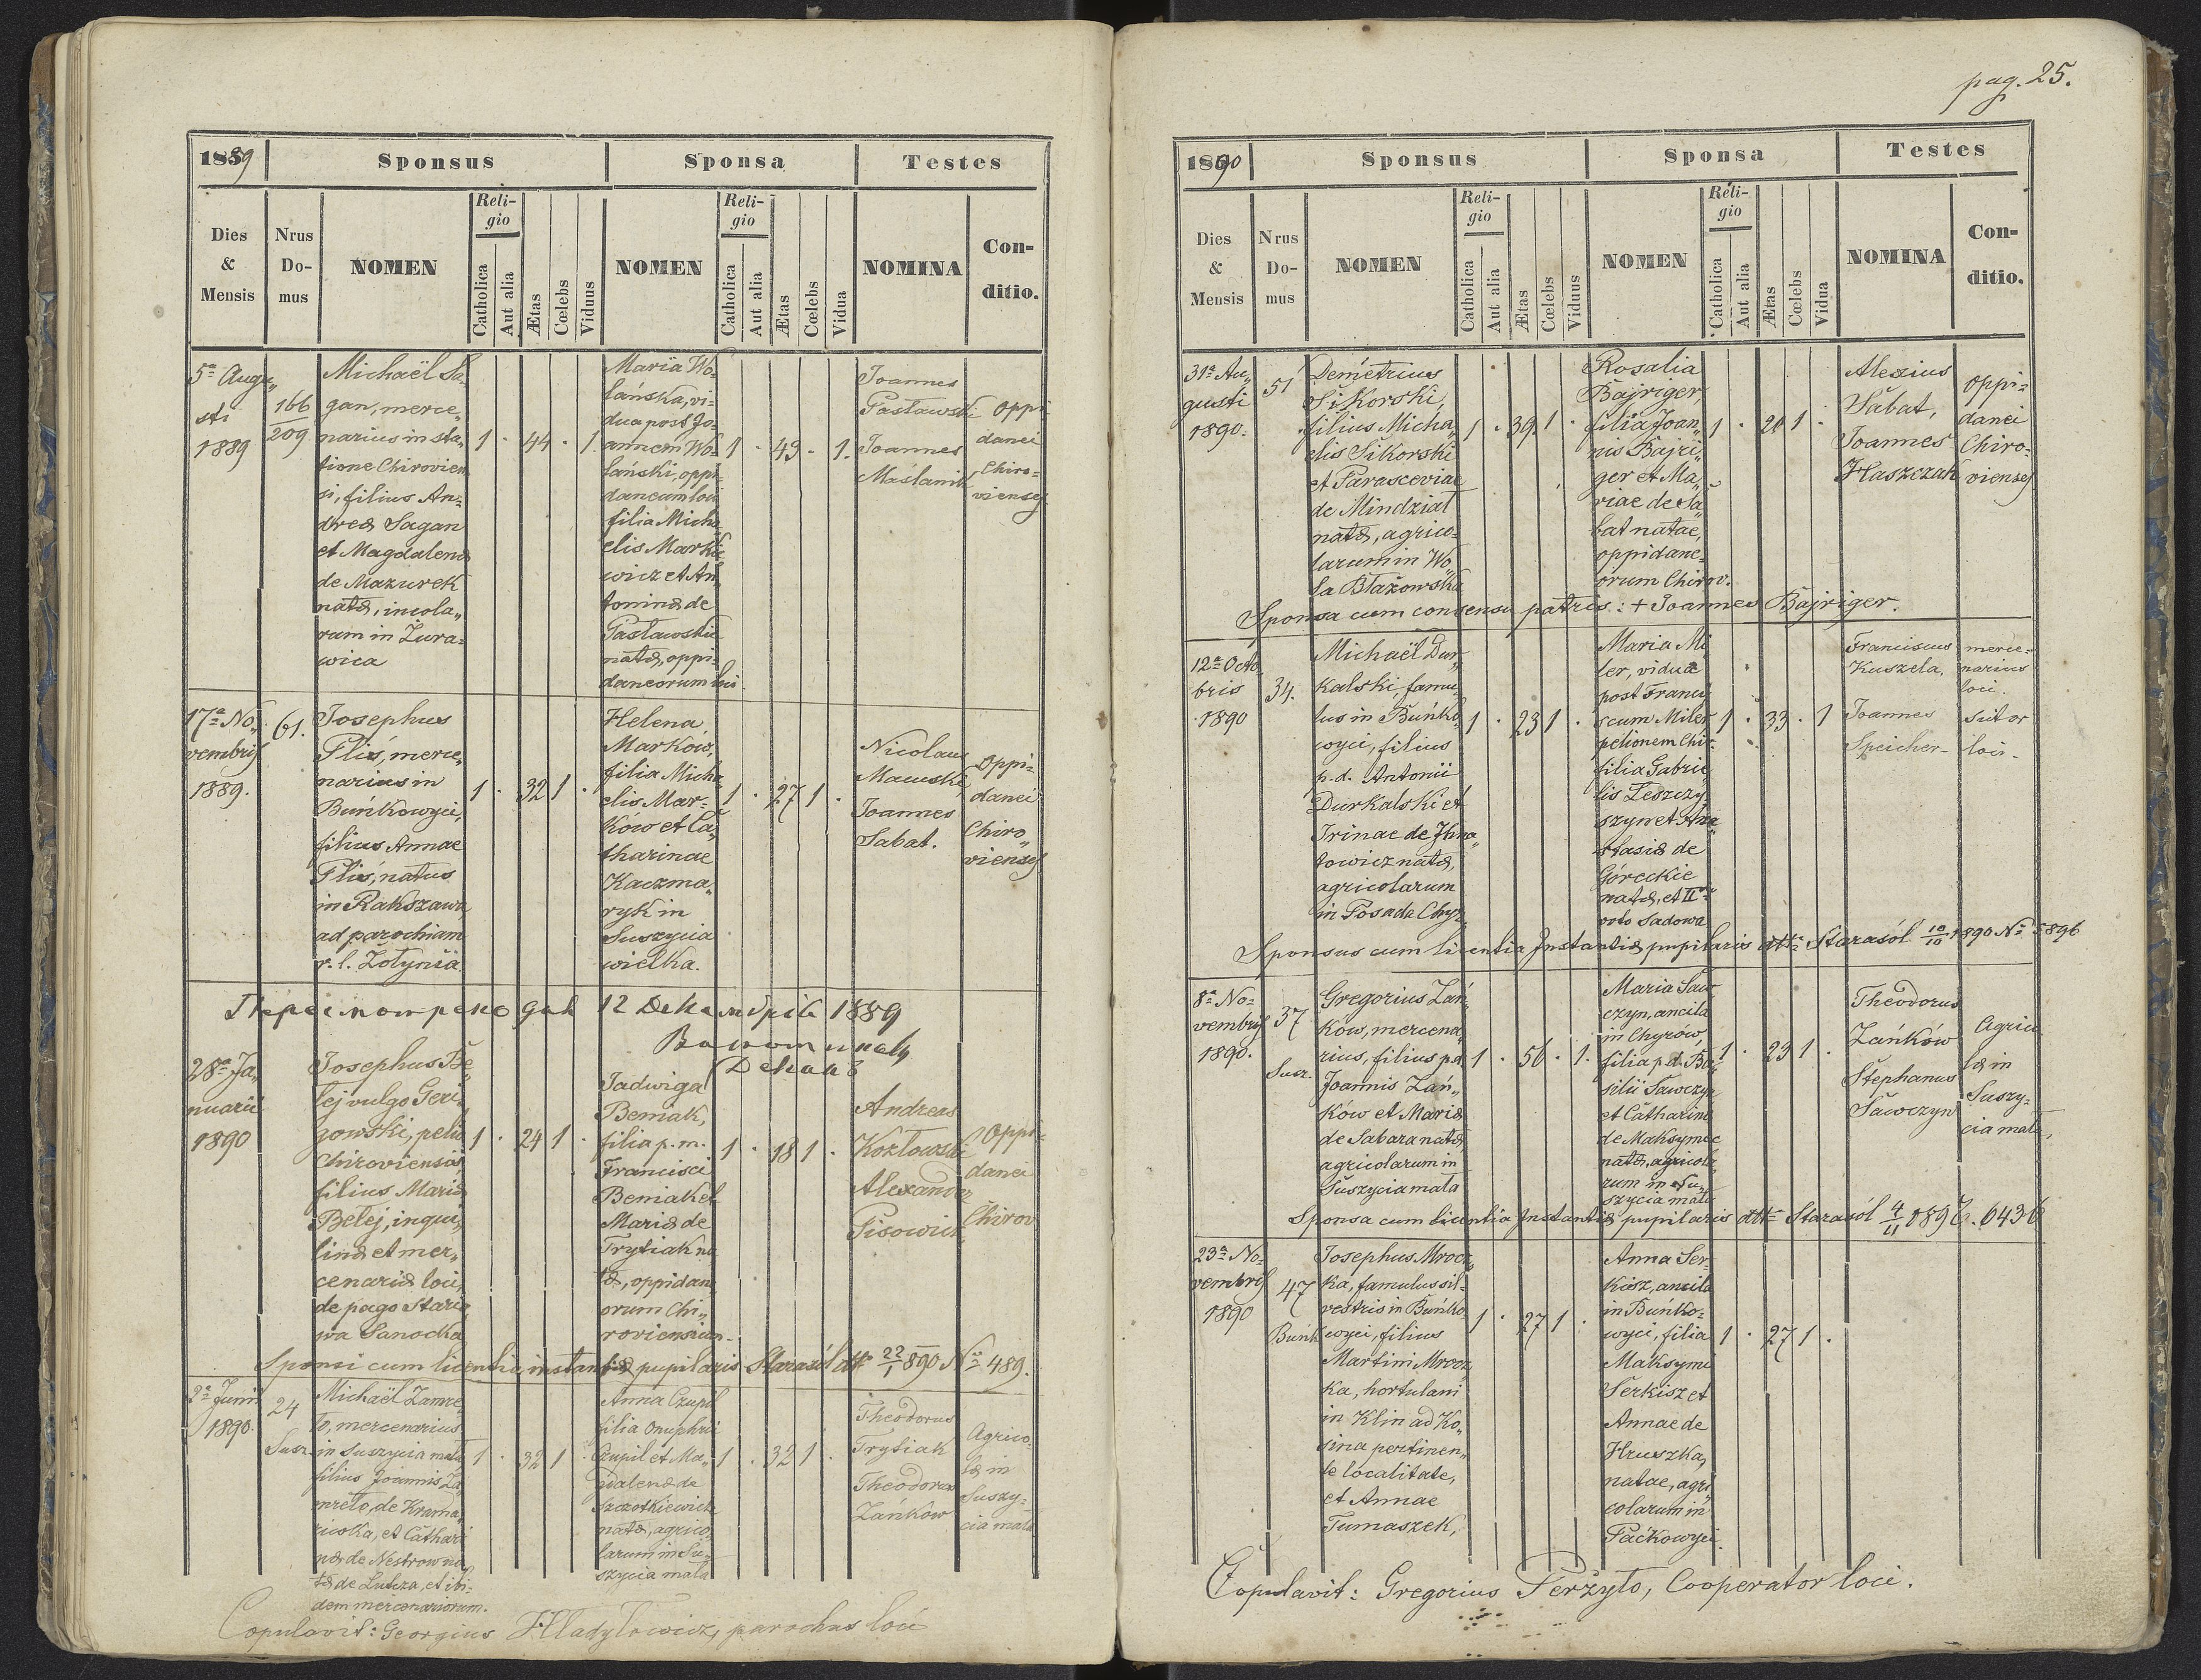 1889
Sponsus
Sponsa
Testes
Dies & Mensis
Nrus Do- mus
NOMEN
Reli- gio
Catholica
Aut alia
Ætas
Cœlebs
Viduus
NOMEN
Reli- gio
Catholica
Aut alia
Ætas
Cœlebs
Vidua
NOMINA
Con- ditio.
5ª Augu„
sti
1889
166
209
Michaël Sa„
gan, merce„
narius in sta„
tione Chirovien
si, filius An=
dreæ Sagan
et Magdalenæ
de Mazurek
natæ, incola„
rum in Żura=
wica
1 · 44 · 1.
Maria Wo=
lańska, vi=
dua post Jo=
annem Wo=
lański, oppi=
daneum loci
filia Micha
elis Markie
wicz et An
toninæ de
Pasławskie
natæ, oppi=
daneorum loci
1 · 43 · 1.
Joannes
Pasławski
Joannes
Maślanik
oppi
danei
Chiro=
vienses
17ª No„
vembris
1889.
61.
Josephus
Pliś, merce„
narius in
Buńkowyci,
filius Annae
Pliś, natus
in Rakszawa
ad parochiam
r. l. Żołynia
1 · 32 1 ·
Helena
Marków,
filia Micha
elis Mar=
ków et Ca„
tharinae
Kaczma„
ryk in
Suszycia
wielka.
1 · 27 1 ·
Nicolaus
Joannes
Sabat.
Oppi=
danei
Chiro„
vienses
12 1889
28ª Ja„
nuarii
1890
Josephus Be
lej vulgo Geri„
gowski, pelio
Chiroviensis,
filius Mariæ
Belej, inqui„
linæ et mer„
cenariæ loci,
de pago Staria„
wa Sanocka
1 · 24 1 ·
Jadwiga
Beniak,
filia p. m.
Francisci
Beniak et
Mariæ de
Trytiak na
tæ, oppidane
orum Chi„
roviensium
1 · 18 1 ·
Andreas
Kozłowski
Alexander
Pisowicz
Oppi=
danei
Chirov
Sponsi cum licentia instantiæ pupilaris Starasól dtto 22/1 890 No 489.
2ª Junii
1890.
24
Susz.
Michaël Zamre„
to, mercenarius
in Suszycia mala
filius Joannis Za„
mreto, de Krama„
ricoka, et Cathari
næ de Nestrow na
tæ de Lutcza, et ibi=
dem mercenariorum.
1 · 32 1 ·
Anna Czupil
filia Onuphrii
Czupil et Ma„
gdalenæ de
Szczotkiewicz
natæ, agrico
larum in Su„
szycia mala
1 · 32 1 ·
Theodorus
Trytiak
Theodorus
Zańków
Agrico„
læ in
Suszy=
cia mala
Copulavit: Georgius Hladyłowicz, parochus loci
pag. 25.
1890
Sponsus
Sponsa
Testes
Dies & Mensis
Nrus Do- mus
NOMEN
Reli- gio
Catholica
Aut alia
Ætas
Cœlebs
Viduus
NOMEN
Reli- gio
Catholica
Aut alia
Ætas
Cœlebs
Vidua
NOMINA
Con- ditio.
31ª Au„
gusti
1890.
51
Demetrius
Sikorski,
filius Micha„
elis Sikorski
et Parasceviae
de Mindział
natæ, agrico=
larum in Wo„
la Błażowska
1 · 39 1 ·
Rosalia
Bajriger,
filia Joan„
nis Bajri„
ger et Ma„
riae de Sa„
bat natae,
oppidane=
orum Chirov.
1 · 20 1 ·
Alexius
Sabat,
Joannes
Haszczak
oppi=
danei
Chiro=
vienses
Sponsa cum consensu patris: + Joannes Bajriger.
12ª Octo
bris
1890
34.
Michaël Dur„
kalski, famu„
lus in Buńko„
wyci, filius
p. d. Antonii
Durkalski et
Irinae de Ihna„
towicz natæ,
agricolarum
in Posada Chyr.
1 · 23 1 ·
Maria Mi
ler, vidua
post Franci
scum Miler
pelionem Chir.
filia Gabrie
lis Leszczy„
szyn et Ana
stasiæ de
Góreckie
natæ, et II
voto Sadowa
1 · 33 · 1
Franciscus
Kuszela,
Joannes
Speicher
merce=
narius
loci.
sutor
loci.
Sponsus cum licentia Instantiæ pupilaris dtto Starasól 10/10 1890 No 5896
8ª No=
vembris
1890.
37
Susz.
Gregorius Zań„
ków, mercena„
rius, filius p. d.
Joannis Zań„
ków et Mariæ
de Sabara natæ,
agricolarum in
Suszycia mala
1 · 56 · 1.
Maria Saw
czyn, ancila
in Chyrów,
filia p. d. Ba„
silii Sawczyn
et Catharinæ
de Maksymec
natæ, agricola„
rum in Su„
szycia mala
1 · 23 1 ·
Theodorus
Zańków
Stephanus
Sawczyn
Agrico
læ in
Suszy=
cia mala,
Sponsa cum licentia Instantiæ pupilaris dtto Starasól 4/11 1890 6436
23ª No„
vembris
1890
47
Buńk
Josephus Mrocz„
ka, famulus sil=
vestris in Buńko„
wyci, filius
Martini Mrocz„
ka, hortulani
in Klin ad Ko„
sina pertinen„
te localitate,
et Annae
Tumaszek,
1 · 27 1 ·
Anna Ser=
kisz, ancila
in Buńko=
wyci, filia
Maksymi
Serkisz et
Annae de
Hruszka,
natae, agri„
colarum in
Paćkowyci.
1 · 27 1 ·
Copulavit: Gregorius Perżyło, Cooperator loci.